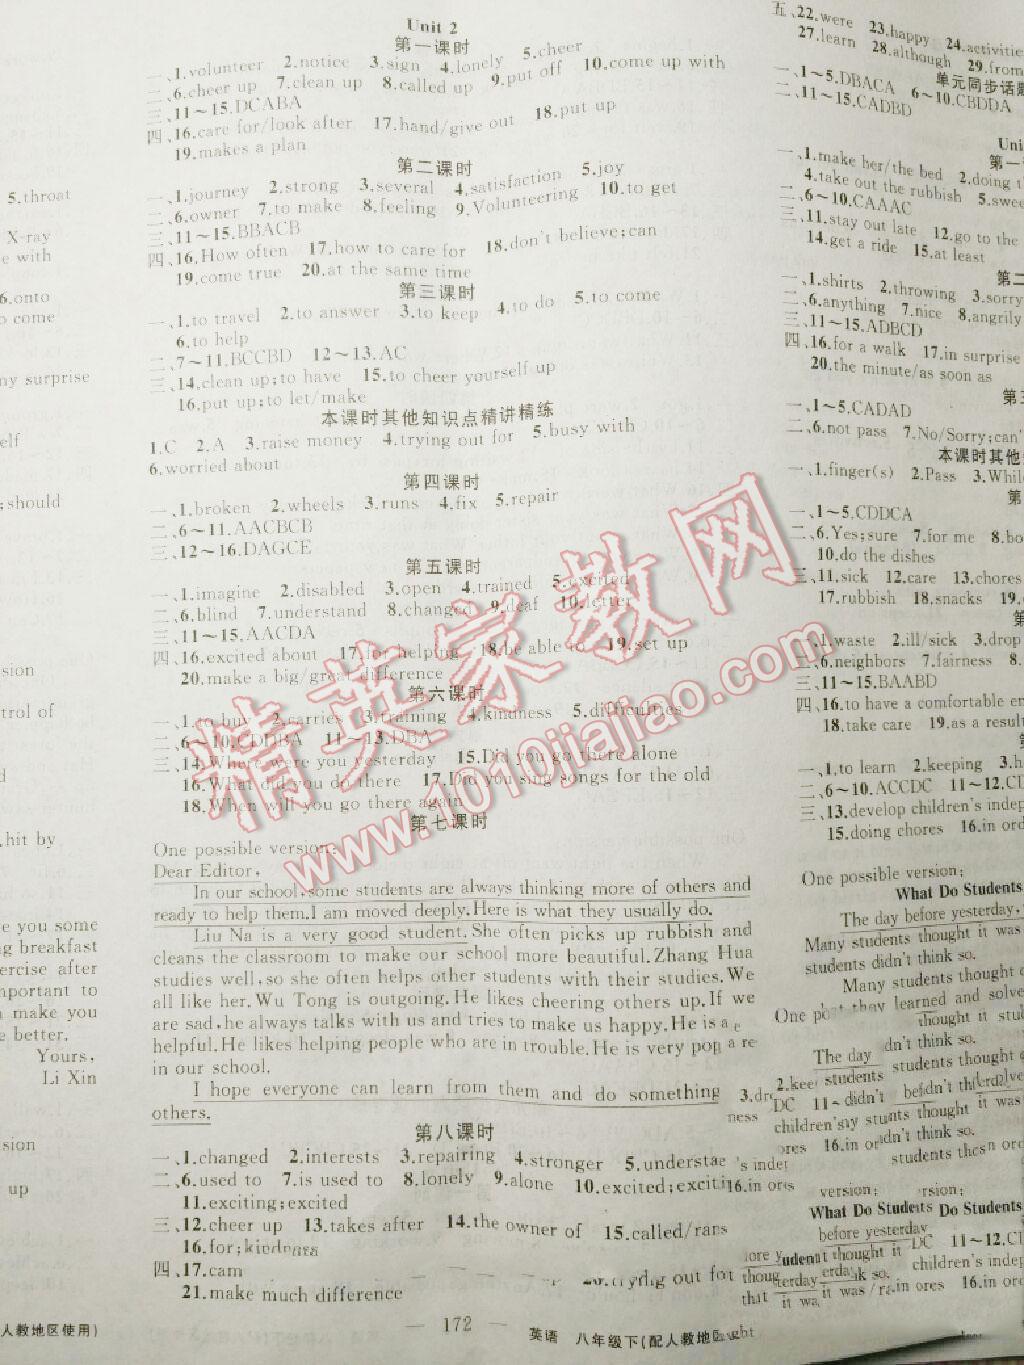 Unit 2
第一课时
一、1.volunteer 2.notice 3.sign 4.lonely 5.cheer
二、6.cheer up 7.clean up 8.called up 9.put off 10.come up with
三、11～15.DCABA
四、16.care for/look after 17.hand/give out 18.put up
19.makes a plan
第二课时
一、1.journey 2.strong 3.several 4.satisfaction 5.joy
二、6.owner 7.to make 8.feeling 9.Volunteering 10.to get
三、11～15.BBACB
四、16.How often 17.how to care for 18.don't believe;can
19.come true 20.at the same time
第三课时
一、1.to travel 2.to answer 3.to keep 4.to do 5.to come
6.to help
二、7～11.BCCBD 12～13.AC
三、14.clean up;to have 15.to cheer yourself up
16.put up;to let/make
本课时其他知识点精讲精练
1.C 2.A 3.raise money 4.trying out for 5.busy with
6.worried about
第四课时
一、1.broken 2.wheels 3.runs 4.fix 5.repair
二、6～11.AACBCB
三、12～16.DAGCE
第五课时
一、1.imagine 2.disabled 3.open 4.trained 5.excited
二、6.blind 7.understand 8.changed 9.deaf 10.letter
三、11～15.AACDA
四、16.excited about 17.for helping 18.be able to 19.set up
20.make a big/great difference
第六课时
一、1.to buy 2.carries 3.training 4.kindness 5.difficulties
二、6～10.CDDBA 11～13.DBA
三、14.Where were you yesterday 15.Did you go there alone
16.What did you do there 17.Did you sing songs for the old
18.When will you go there again
第七课时
One possible version:
Dear Editor,
In our school,some students are always thinking more of others and
ready to help them.I am moved deeply.Here is what they usually do.
Liu Na is a very good student.She often picks up rubbish and
cleans the classroom to make our school more beautiful.Zhang Hua
studies well,so she often helps other students with their studies.We
all like her.Wu Tong is outgoing.He likes cheering others up.If we
are sad,he always talks with us and tries to make us happy.He is a
helpful.He likes helping people who are in trouble.He is very
in our school.
I hope everyone can learn from them and do something
others.
第八课时
一、1.changed 2.interests 3.repairing 4.stronger
二、6.used to 7.is used to 8.lonely 9.alone 10.excited;
11.exciting;excited
三、12.cheer up 13.takes after 14.the owner of 15.called/
16.for;kindness
四、17.
21.make much difference
— 172 —
英语 八年级下(配人教地
5.throat
X-ray
e with
6.onto
o come
ny surprise
self
;should
sion
trol of
d
,hit by
e you some
ng breakfast
ercise after
mportant to
make you
e better.
Yours,
Li Xin
sion
up
人教地区使用)
五、22.were 23.happy 24.activities
27.learn 28.although 29.from
单元同步话题
一、1～5.DBACA 6～10.CBDDA
二、11～15.CADBD
Uni
第一
一、1.make her/the bed 2.doing th
4.take out the rubbish 5.swee
二、6～10.CAAAC
三、11.stay out late 12.go to the
14.get a ride 15.at least
第二
一、1.shirts 2.throwing 3.sorry
二、6.anything 7.nice 8.angrily
三、11～15.ADBCD
四、16.for a walk 17.in surprise
20.the minute/as soon as
第三
一、1～5.CADAD
二、6.not pass 7.No/Sorry;can'
本课时其他
一、1.finger(s) 2.Pass 3.Whil
第
一、1～5.CDDCA
二、6.Yes;sure 7.for me 8.bo
10.do the dishes
三、11.sick 12.care 13.chores
17.rubbish 18.snacks 19.
第
一、1.waste 2.ill/sick 3.drop
二、6.neighbors 7.fairness 8.
三、11～15.BAABD
四、16.to have a comfortable en
18.take care 19.as a resul
第
一、1.to learn 2.keeping 3.h
二、6～10.ACCDC 11～12.C
三、13.develop children's indep
15.doing chores 16.in ord
One possible version:
What Do Students
The day before yesterday,
Many students thought it was
students didn't think so.
Many students thought
精英家教网
www.1010jiajiao.com